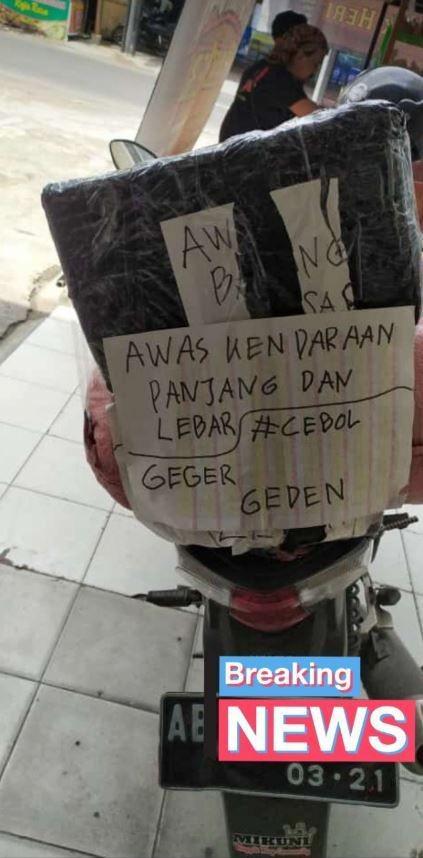 AWAS KENDARAAN
PANJANG DAN
LEBAR #CEBOL
GEGER
GEDEN
Breaking
NEWS
AB
03·21
MIKUNI